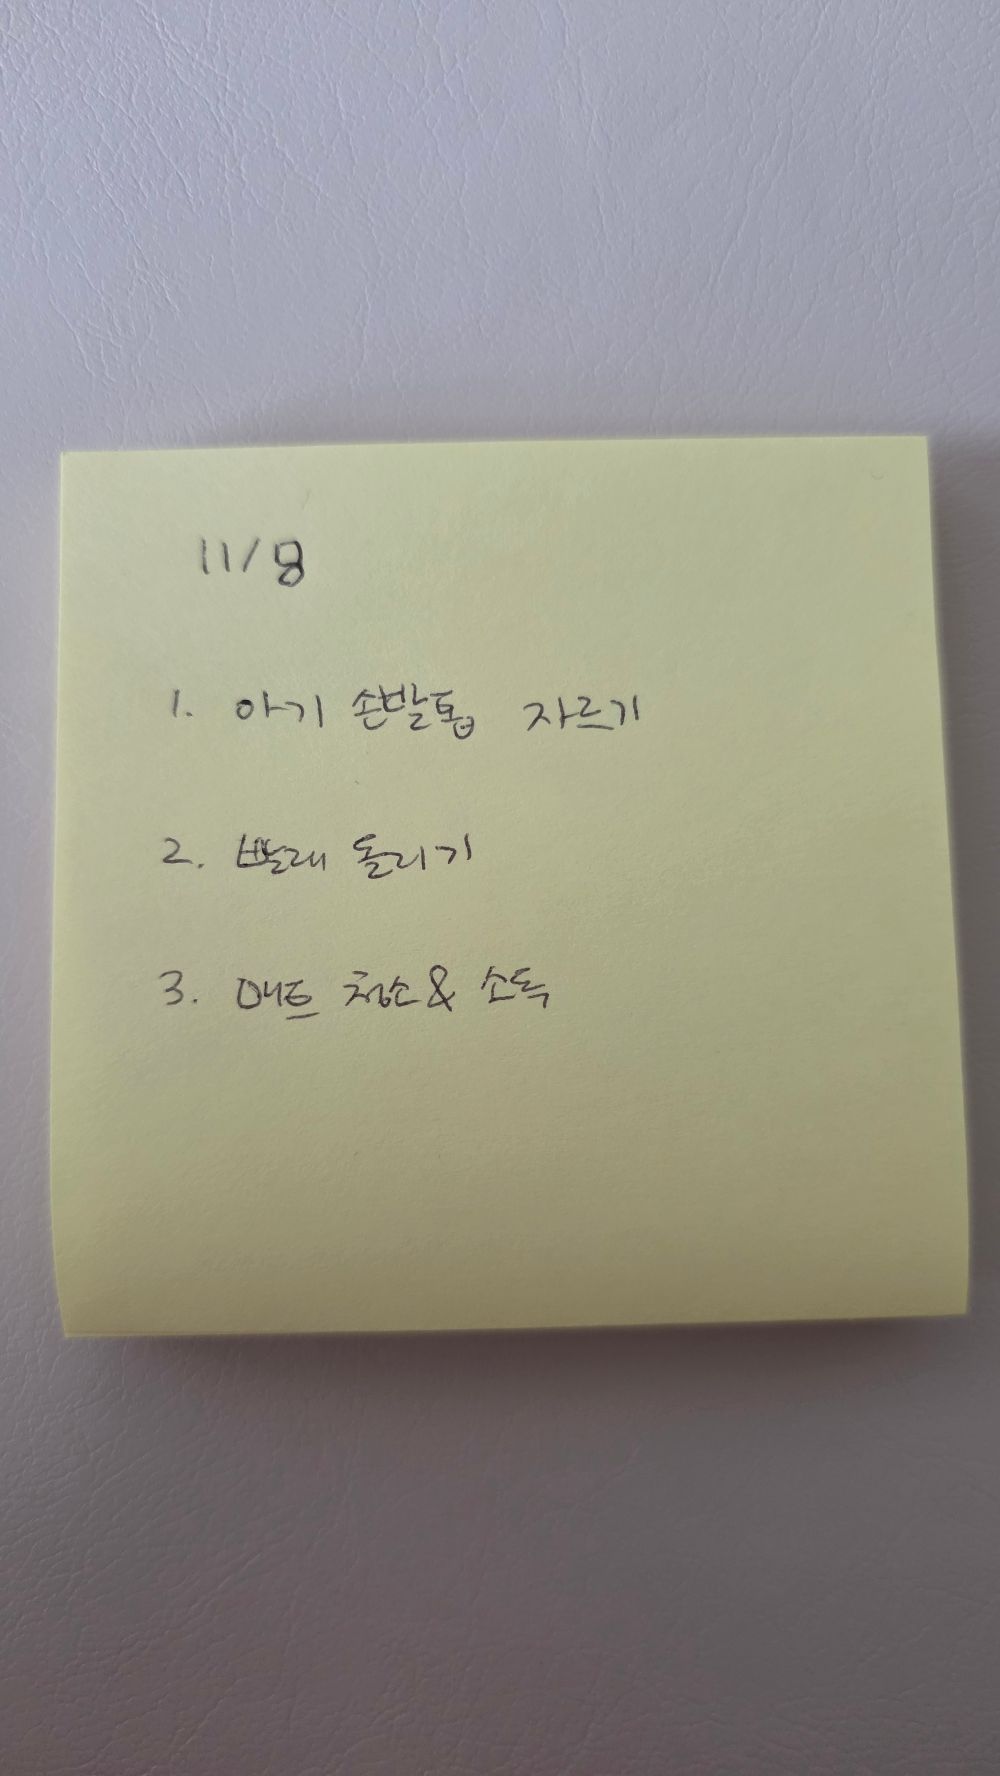 11/8
1. 아기 손발톱 자르기
2. 빨래 돌리기
3. 매트 청소 & 소독